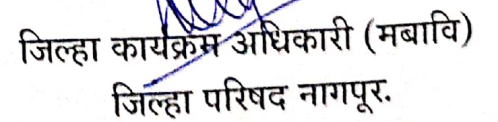 जिल्हा कार्यक्रम अधिकारी (मबावि)
जिल्हा परिषद नागपूर.